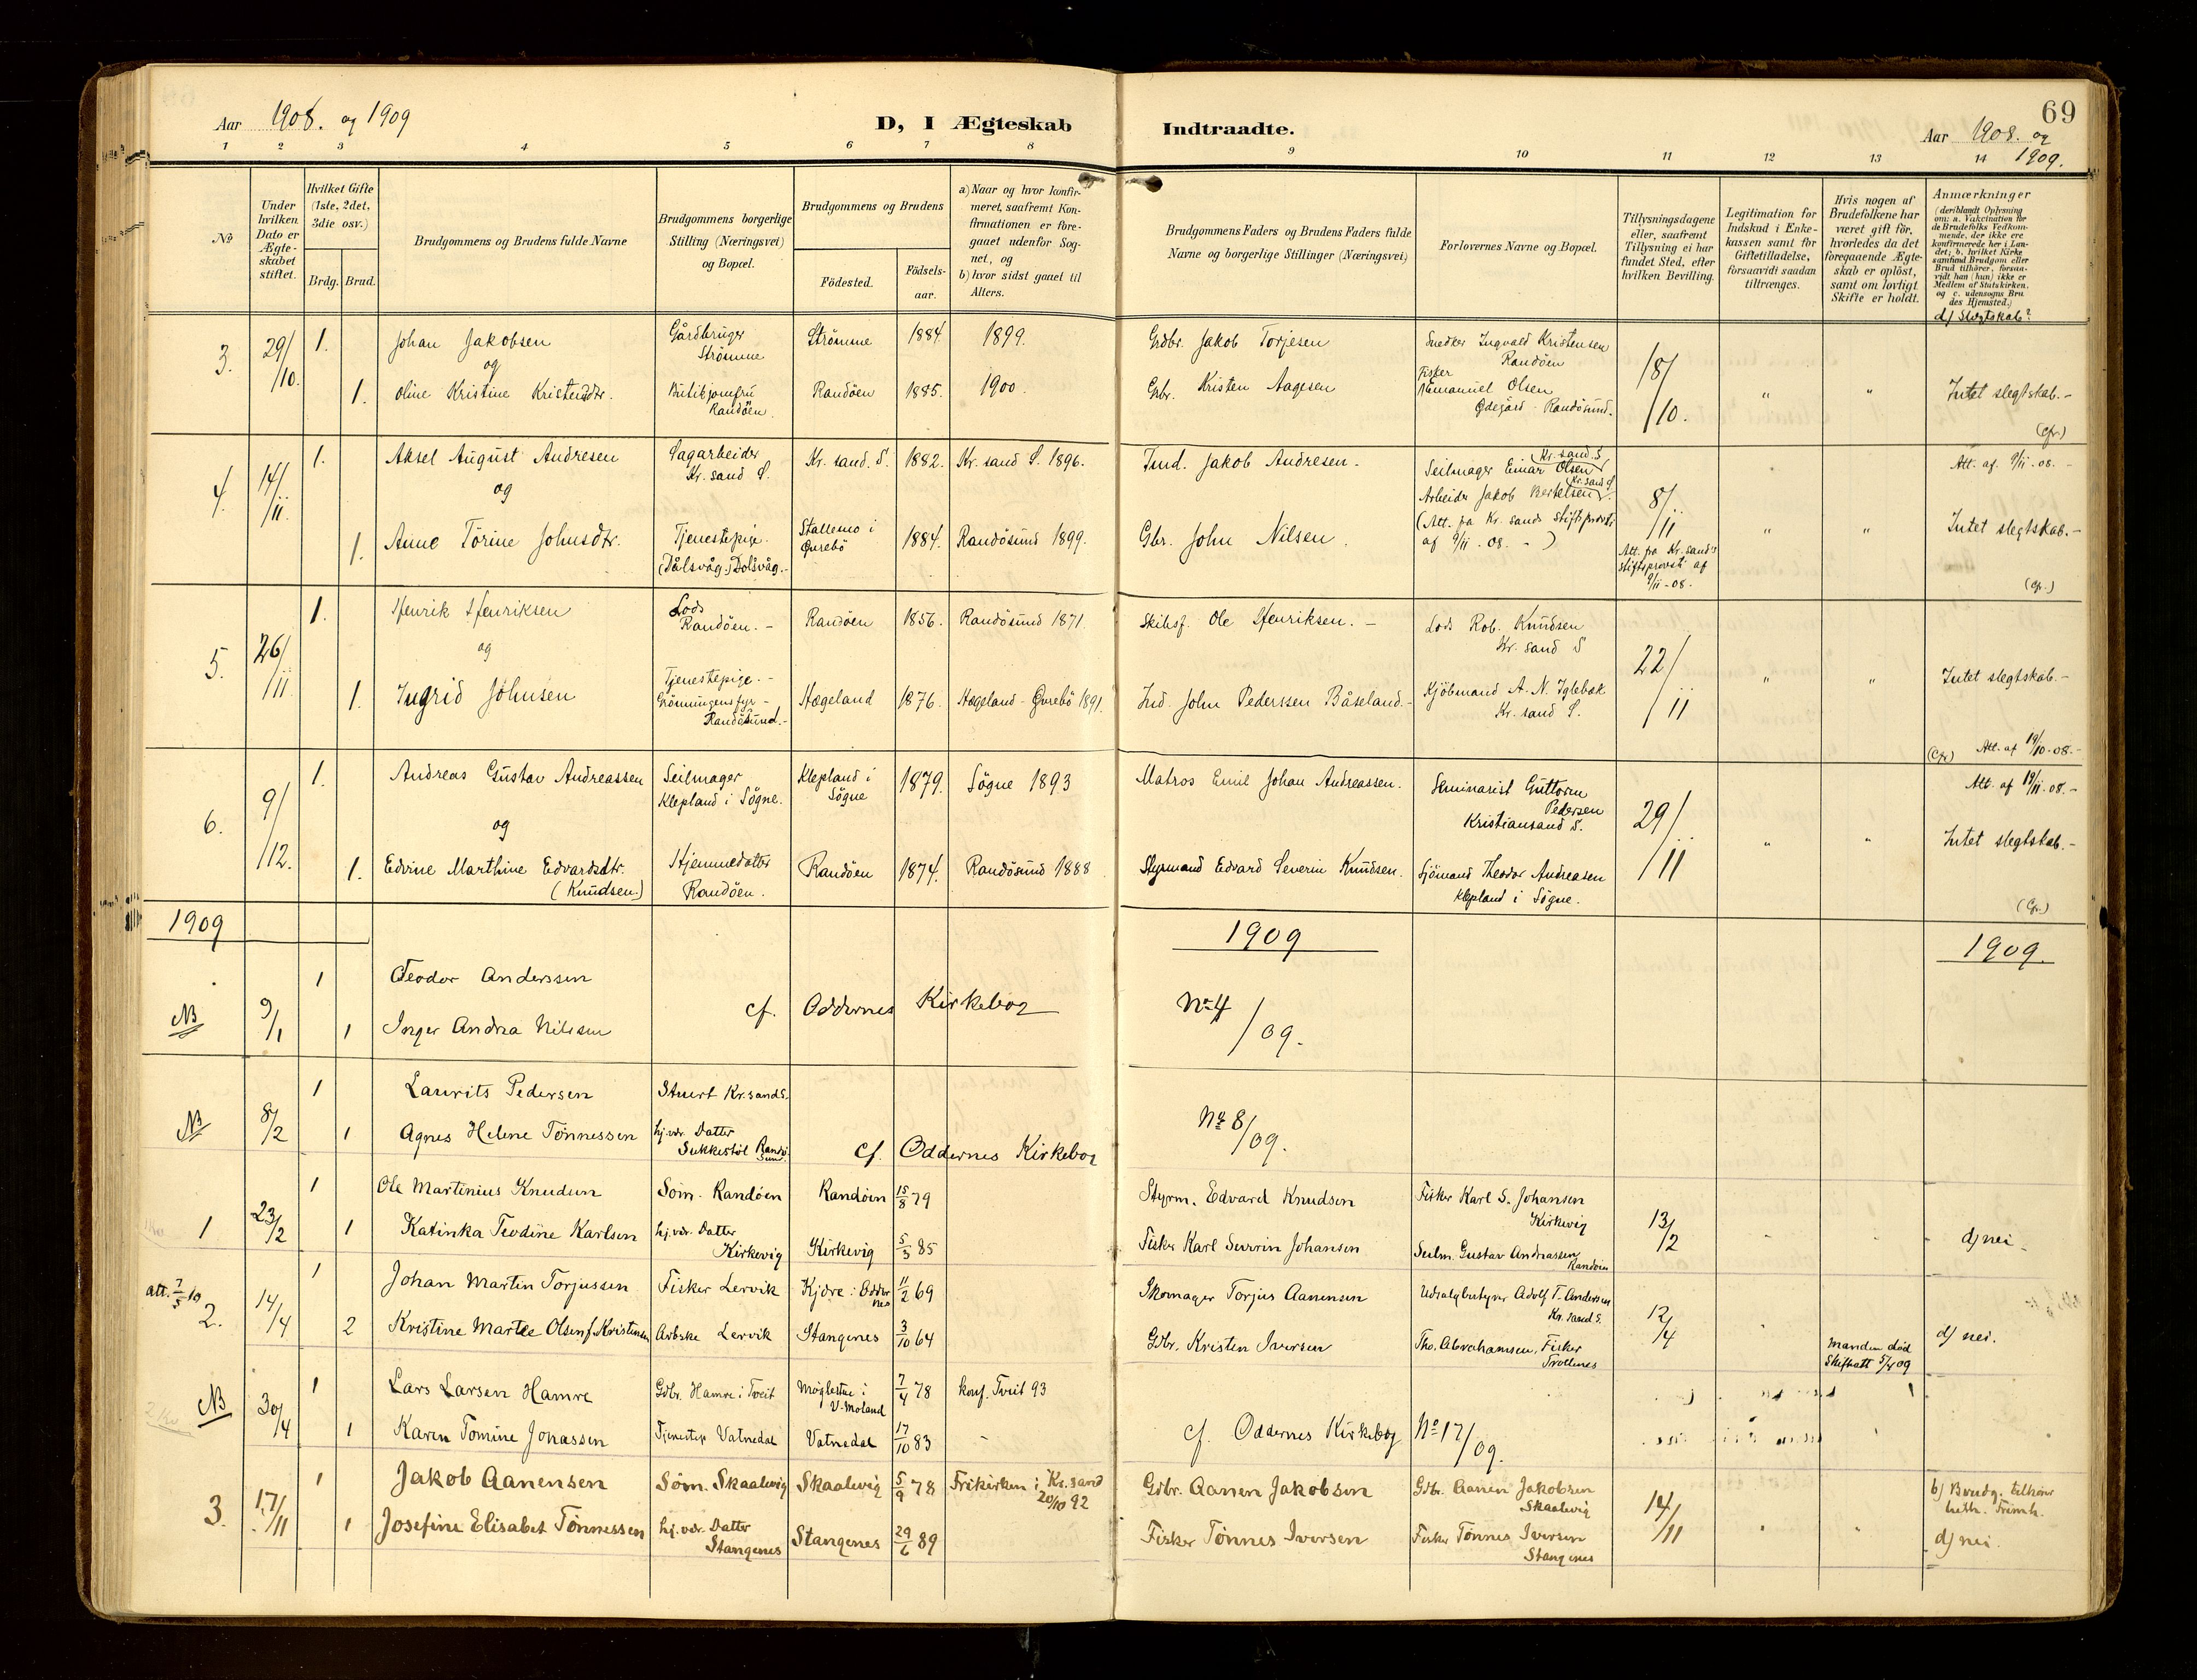 69
Aar 1908. og 1909
D, I Ægteskab Indtraadte.
Aar 1908. og
1909.
1 2 3 4 5 6 7 8 9 10 11 12 13 14
No
Under hvilken Dato er Ægteskabet stiftet.
Hvilket Gifte (1ste, 2det, 3die osv.)
Brdg. Brud.
Brudgommens og Brudens fulde Navne
Brudgommens borgerlige Stilling (Næringsvei) og Bopæl.
Brudgommens og Brudens
Fødested.
Fødselsaar.
a) Naar og hvor konfirmeret, saafremt Konfirmationen er foregaaet udenfor Sognet, og
b) hvor sidst gaaet til Alters.
Brudgommens Faders og Brudens Faders fulde Navne og borgerlige Stillinger (Næringsvei)
Forlovernes Navne og Bopæl.
Tillysningsdagene eller, saafremt Tillysning ei har fundet Sted, efter hvilken Bevilling.
Legitimation for Indskud i Enkekassen samt for Giftetilladelse, forsaavidt saadan tiltrænges.
Hvis nogen af Brudefolkene har været gift før, hvorledes da det foregaaende Ægteskab er opløst, samt om lovligt Skifte er holdt.
Anmærkninger
(deriblandt Oplysning om: a. Vakcination for de Brudefolks Vedkommende, der ikke ere konfirmerede her i Landet; b. hvilket Kirkesamfund Brudgom eller Brud tilhører, forsaavidt han (hun) ikke er Medlem af Statskirken. og c. udensogns Brudes Hjemsted.)
d) Slegtskab?
3. 29/10. 1. Johan Jakobsen Gårdbruger Strømme Strømme 1884. 1899. Grdbr. Jakob Torjesen Snedker Ingvald Kristensen Randöen 18/10.
og
1. Oline Kristine Kristensdtr. Butikjomfru Randöen. Randöen 1885. 1900. Gbr. Kristen Aagesen Fisker Emanuel Olsen Ödegård - Randösund. " " Intet slegtskab. -
4. 14/11. 1. Aksel August Andresen Sagarbeider Kr. sand S. Kr. sand. S. 1882. Kr. sand S. 1896. Jakob Andresen. - Seilmager Einar Olsen Kr. sand. S Att. af 9/11 - 08. -
og
Arbeider Jakob Bertelsen Kr. sand S. 8/11
1. Anne Törine Johnsdtr. Tjenestepige. (Dålsvåg.) Dolsvåg. - Stallemo i Øvrebö 1884. Randösund 1899. Gbr. John Nilsen. (Att. fra Kr. sands Stiftsprovsti af 9/11 - 08. - ) " " Intet slegtskab. -
Att. fra Kr. sand's Stiftsprovsti af 9/11 - 08.
5. 26/11. 1. Henrik Henriksen Lods Randöen. - Randöen 1856. Randösund 1871. Skibsf. Ole Henriksen. - Lods Rob. Knudsen Kr. sand S 22/11
og
1. Ingrid Johnsen Tjenestepige. - Grönningens fyr - Randösund. - Hægeland 1876. Hægeland - Øvrebö 1891. Ind. John Pederssen Båseland. - Kjöbmand A. N. Iglebæk Kr. sand S. " " Intet slegtskab. -
Att. af 19/10 - 08. -
6. 9/12. 1. Andreas Gustav Andreassen Seilmager Klepland i Søgne. Klepland i Søgne 1879. Søgne 1893 Matros Emil Johan Andreassen. Seminarist Guttorm Pedersen Kristiansand S. 29/11 Att. af 19/11 - 08. -
og
1. Edvine Marthine Edvardsdtr. (Knudsen.) Hjemmedatter Randöen. Randöen 1874. Randösund 1888 Styrmand Edvard Severin Knudsen. Sjömand Theodor Andreasen Klepland i Søgne. " " Intet slegtskab. -
1909 1909 1909.
NB 9/1 1 Teodor Anderssen
1 Inger Andrea Nilssen cf. Oddernes Kirkebog No 4/09.
NB 8/2 1 Laurits Pedersen Stuert Kr.sand S.
1 Agnes Helene Tønnessen hj.vær. Datter Sukkestøl Randøsund. cf. Oddernes Kirkebog No 8/09.
1 23/2 1 Ole Martinius Knudsen Søm. Randøen Randøen 15/8 79 Styrm. Edvard Knudsen Fisker Karl S. Johansen Kirkevig 13/2
1 Katinka Teodine Karlsen hj.vær. Datter Kirkevig Kirkevig 5/3 85 Fisker Karl Severin Johansen Seilm. Gustav Andreassen Randøen d) nei.
att. 7/5 10
2. 14/4 1 Johan Martin Torjussen Fisker Lervik Kjøre i Oddernes 11/2 69 Skomager Torjus Aanensen Udsalgbestyrer Adolf T. Andersen Kr. sand S. 12/4
2 Kristine Marte Olsen f. Kristensen Arbske Lervik Stangenes 3/10 64 Gdbr. Kristen Iversen Tho. Abrahamsen, Fisker Trollnes Manden død Skifteatt 5/4 09 d) nei.
NB 30/4 1 Lars Larsen Hamre Gdbr. Hamre i Tveit Møglestue i V. Moland 7/4 78 konf. Tveit 93
1 Karen Tomine Jonassen Tjenestep Vatnedal Vatnedal 17/10 83 - cf. Oddernes Kirkebog No 17/09.
3. 17/11 1 Jakob Aanensen Søm. Skaalevig Skaalevig 5/9 78 Frikirken i Kr. sand 20/10 92 Gdbr. Aanen Jakobsen Gdbr. Aanen Jakobsen Skaalevig 14/11 b) Brudg. tilhører luth. Frimh.
1 Josefine Elisabet Tønnessen hj. vær. Datter Stangenes Stangenes 29/6 89 Fisker Tønnes Iversen Fisker Tønnes Iversen Stangenes " " d) nei.